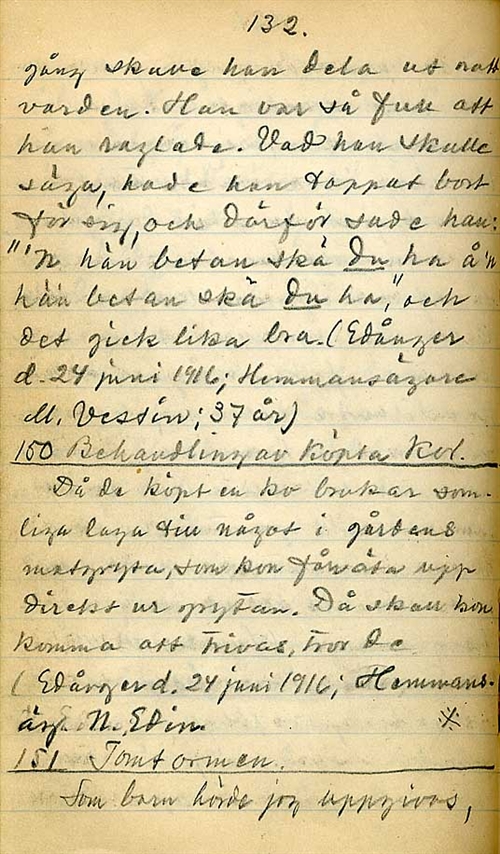 132.
gång skulle han dela ut natt
varden. Han var så full att
han raglade. Vad han skulle
säga, hade han tappat bort
för sig, och därför sade han:
"'N hän betan skä du ha å 'n
hän betan skä du ha," och
det gick lika bra. (Edånger
d. 24 juni 1916; Hemmansägare
M. Vessén; 37 år)
150 Behandling av köpta kol.
Då de köpt en ko brukar som-
liga laga till något i gårdens
matgryta, som kon får äta upp
direkt ur grytan. Då skall kon
komma att trivas, tror de
(Edånger d. 24 juni 1916; Hemmans-
äg. N. Edin.
151 Tomtormen.
Som barn hörde jag uppgivas,